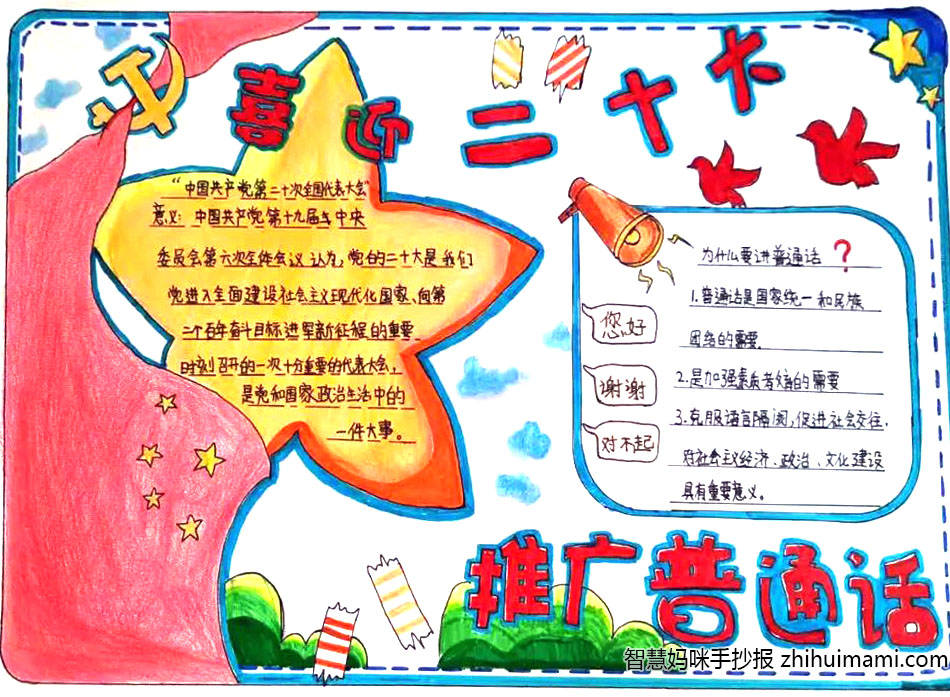 喜迎二十大
“中国共产党第二十次全国代表大会”
意义：中国共产党第十九届中央
委员会第六次全体会议认为，党的二十大是我们
党进入全面建设社会主义现代化国家、向第
二个百年奋斗目标进军新征程的重要
时刻召开的一次十分重要的代表大会，
是党和国家政治生活中的
一件大事。
为什么要讲普通话？
1.普通话是国家统一和民族
团结的需要。
您好
谢谢
2.是加强素质教育的需要
3.克服语言隔阂，促进社会交往，
对不起
对社会主义经济、政治、文化建设
具有重要意义。
推广普通话
智慧妈咪手抄报 zhihuimami.com